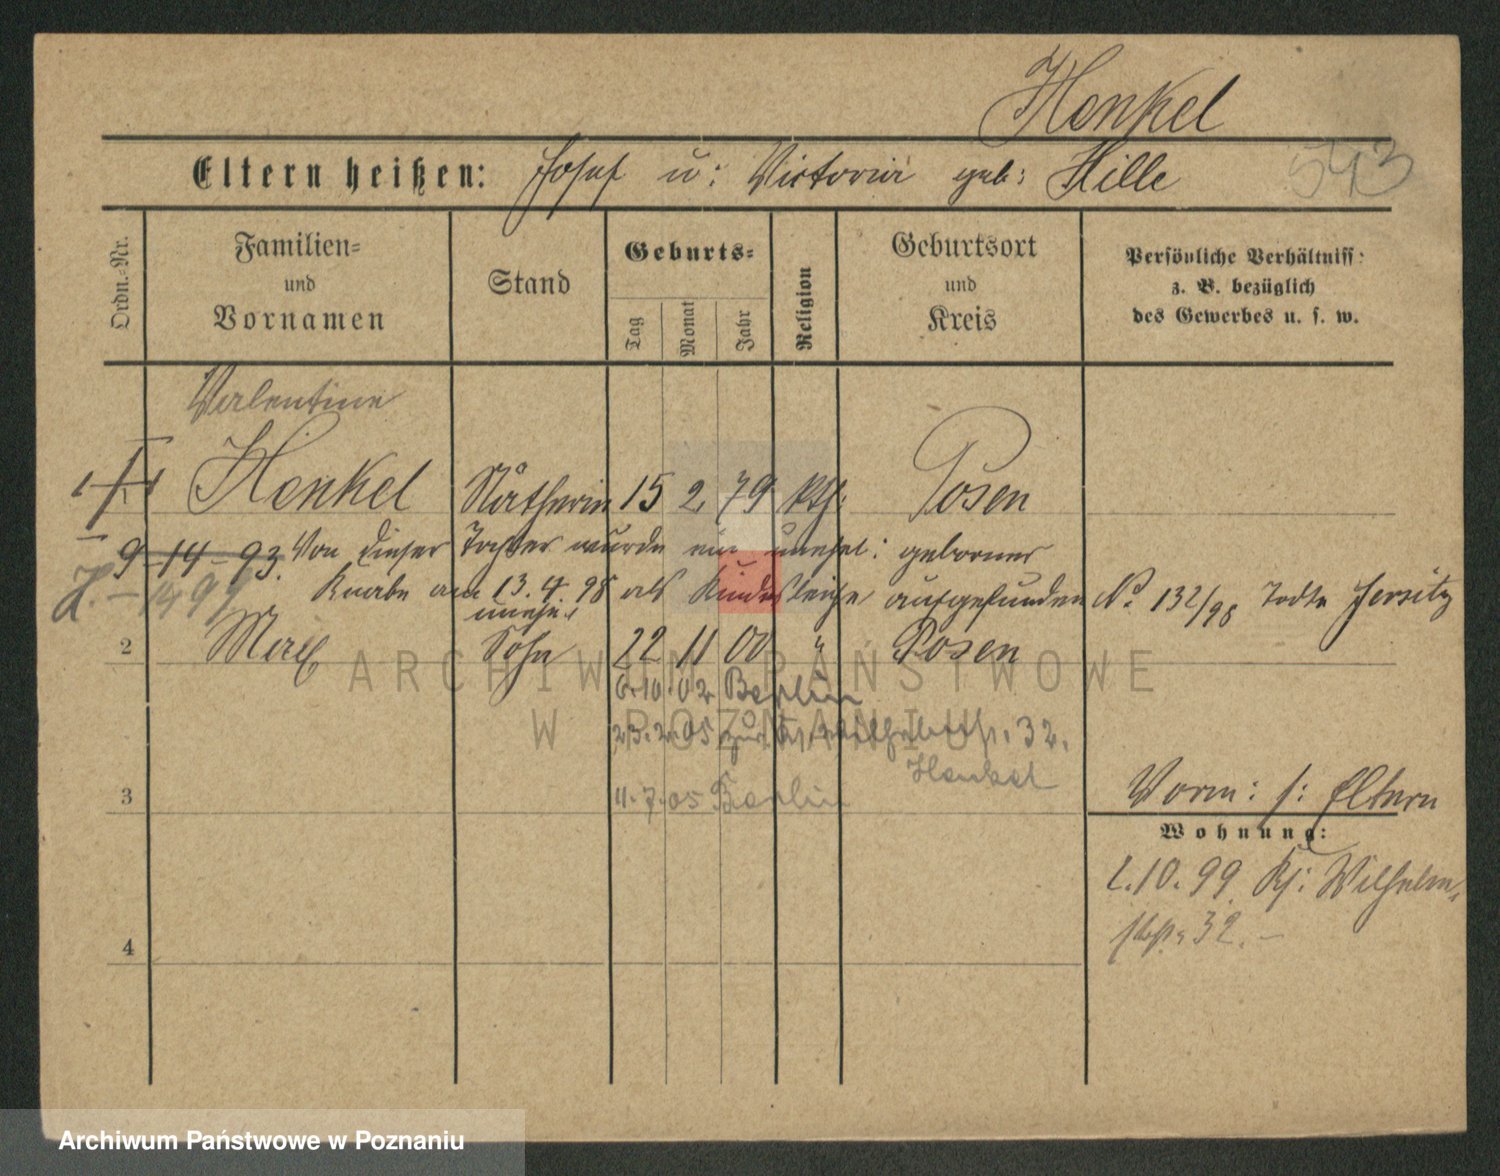 Henkel
Eltern heißen: Josef u: Victoria geb: Hille 543
Ordn.=Nr.
Familien=
und
Vornamen
Stand
Geburts=
Tag
Monat
Jahr
Religion
Geburtsort
und
Kreis
Persönliche Verhältniss:
z. B. bezüglich
des Gewerbes u. s. w.
Valentine
1 Henkel Nätherin 15 2 79 kth: Posen
9-14-93. Von dieser Tochter wurde ein unehel: geborener
Knabe am 13.4.98 als Kindesleiche aufgefunden No 132/98 Todte Jersitz
J. - 14 99
unehe:
2 Sohn 22 11 00 " Posen
6.10.02 Berlin
23.2.05 zur. Kj. Wilhelmstr. 32.
Henkel
3 11.7.05 Berlin
Vorm: s: Eltern
Wohnung:
1.10.99. Kj: Wilhelm-
str. 32. -
4
ARCHIWUM PAŃSTWOWE
W POZNANIU
Archiwum Państwowe w Poznaniu